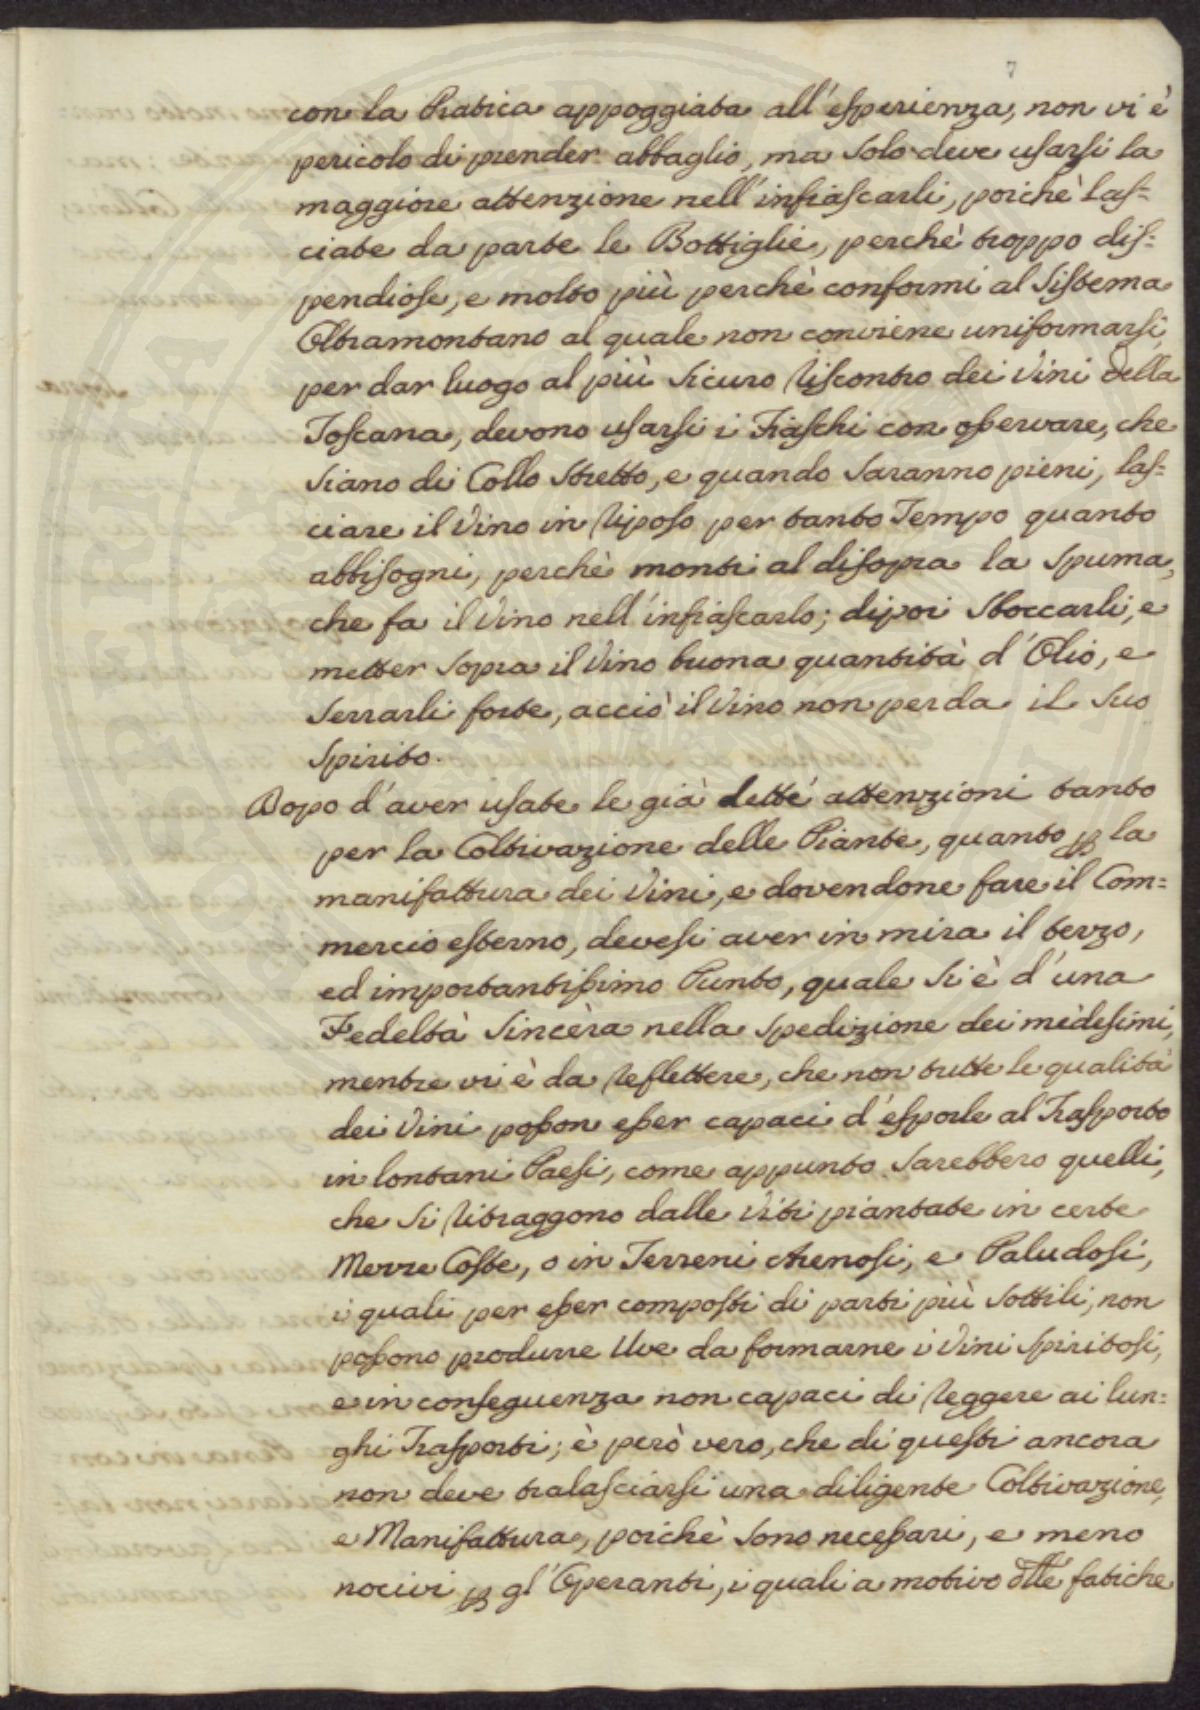 7
con la Pratica appoggiata all'esperienza, non vi è
pericolo di prender abbaglio, ma solo deve usarsi la
maggiore attenzione nell'infiascarli, poichè las=
ciate da parte le Bottiglie, perchè troppo dis=
pendiose, e molto più perchè conformi al Sistema
Oltramontano al quale non conviene uniformarsi,
per dar luogo al più sicuro Riscontro dei Vini della
Toscana, devono usarsi i Fiaschi con osservare, che
siano di Collo Stretto, e quando saranno pieni, las=
ciare il Vino in Riposo per tanto Tempo quanto
abbisogni, perchè monti al disopra la Spuma,
che fa il Vino nell'infiascarlo; dipoi Sboccarli, e
metter sopra il Vino buona quantità d'Olio, e
Serrarli forte, acciò il Vino non perda il suo
Spirito.
Dopo d'aver usate le già dette attenzioni tanto
per la Coltivazione delle Piante, quanto p la
manifattura dei Vini, e dovendone fare il Com=
mercio esterno, devesi aver in mira il terzo,
ed importantissimo Punto, quale si è d'una
Fedeltà Sincèra nella Spedizione dei medesimi,
mentre vi è da Reflettere, che non tutte le qualità
dei Vini posson esser capaci d'esporle al Trasporto
in lontani Paesi, come appunto sarebbero quelli,
che si Ritraggono dalle Viti piantate in certe
Mezze Coste, o in Terreni Arenosi, e Paludosi,
i quali per esser composti di parti più Sottili, non
possono produrre Uve da formarne i Vini Spiritosi,
e in conseguenza non capaci di Reggere ai lun=
ghi Trasporti; è però vero, che di questi ancora
non deve tralasciarsi una diligente Coltivazione,
e Manifattura, poichè sono necessari, e meno
nocivi p gl'Operanti, i quali a motivo dlle fatiche